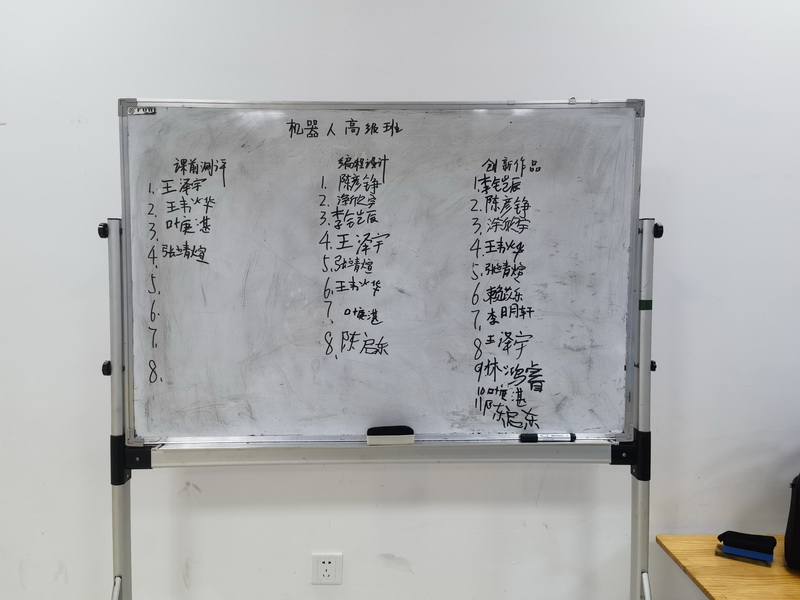 机器人高级班
课前测评
1. 王泽宇
2. 王韦烨
3. 叶庭湛
4. 张靖煊
5.
6.
7.
8.
编程设计
1. 陈彦铮
2. 涂欣宇
3. 李
4. 王泽宇
5. 张靖煊
6. 王韦烨
7. 叶庭湛
8. 陈启东
创新作品
1. 李
2. 陈彦铮
3. 涂欣宇
4. 王韦烨
5. 张靖煊
6. 乐
7. 李明轩
8 王泽宇
9 林鸿睿
10 叶庭湛
11 陈启东